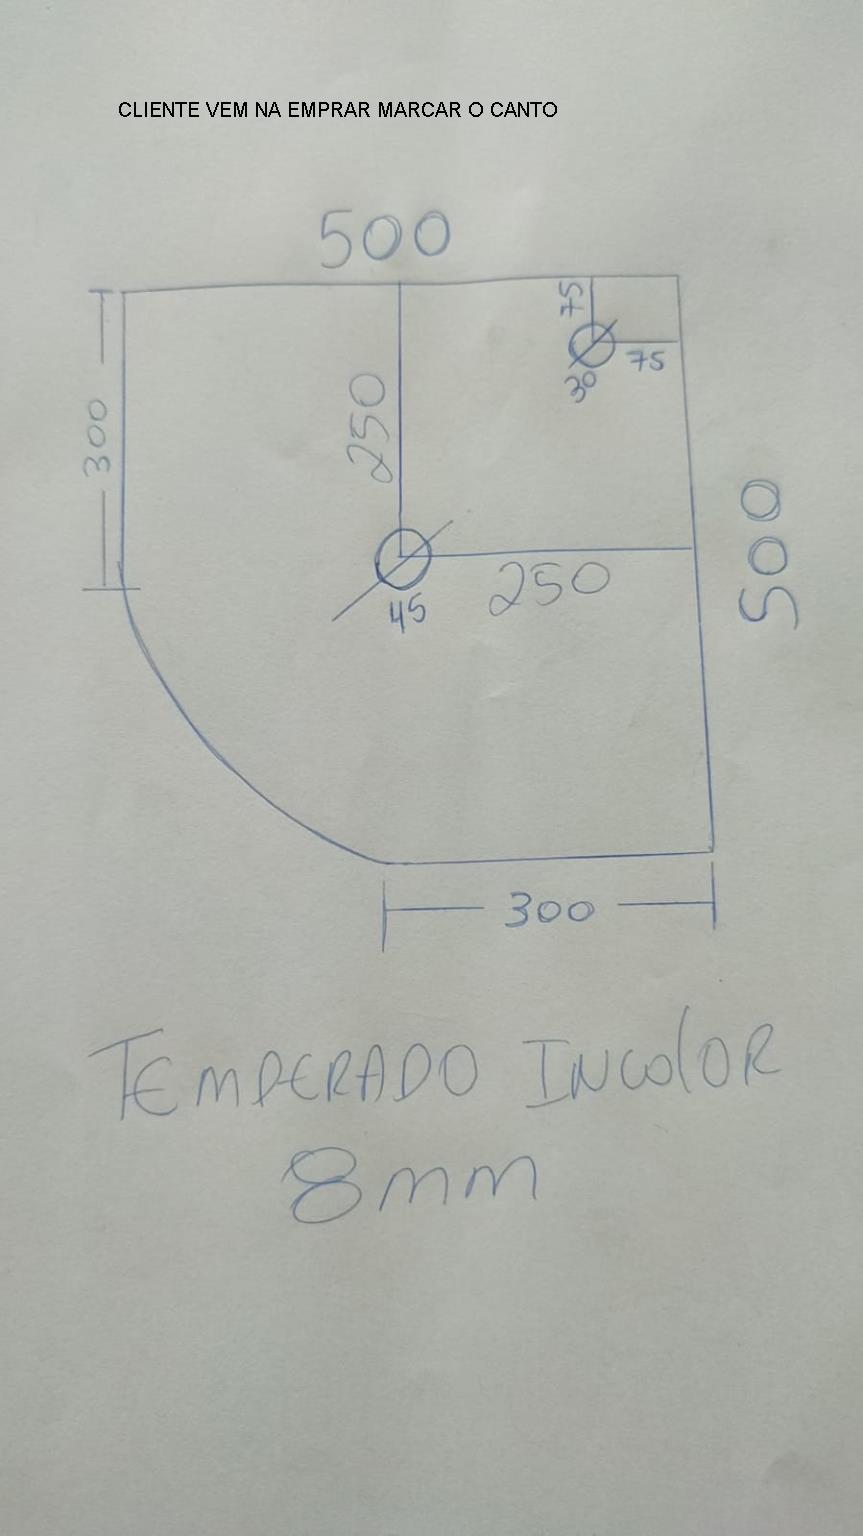 CLIENTE VEM NA EMPRAR MARCAR O CANTO
500
75
75
30
300
250
500
250
45
300
TEMPERADO INCOLOR
8mm